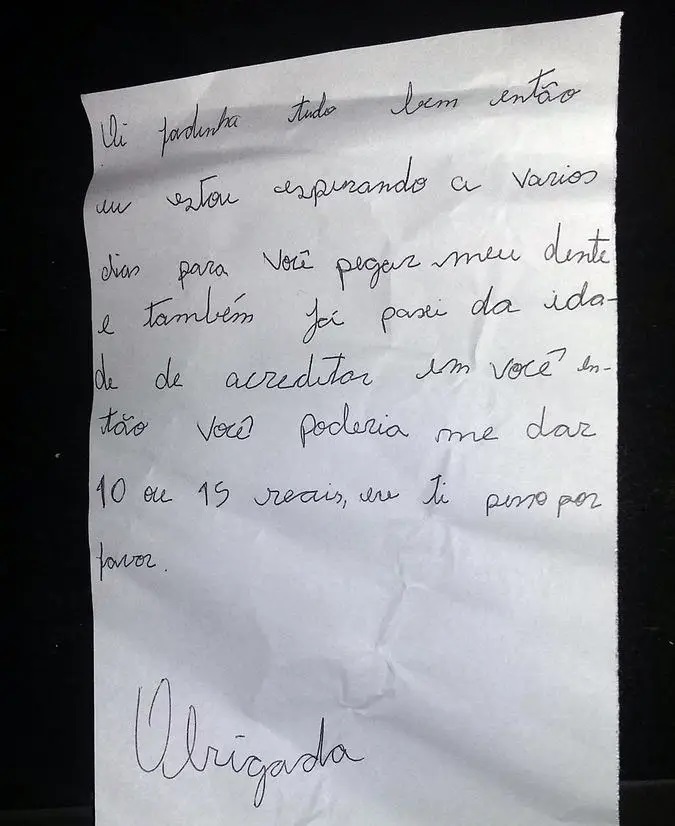 Oi fadinha tudo bem então
eu estou esperando a varios
dias para você pegar meu dente
e também já pasei da ida-
de de acreditar em você en-
tão você poderia me dar
10 ou 15 reais, eu ti pesso por
favor.
Obrigada